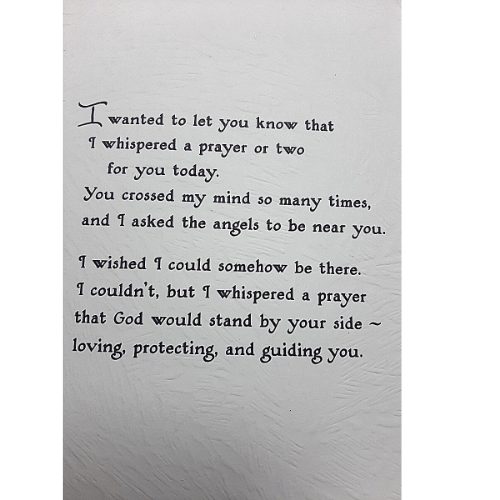 I wanted to let you know that
I whispered a prayer or two
for you today.
You crossed my mind so many times,
and I asked the angels to be near you.
I wished I could somehow be there.
I couldn't, but I whispered a prayer
that God would stand by your side ~
loving, protecting, and guiding you.